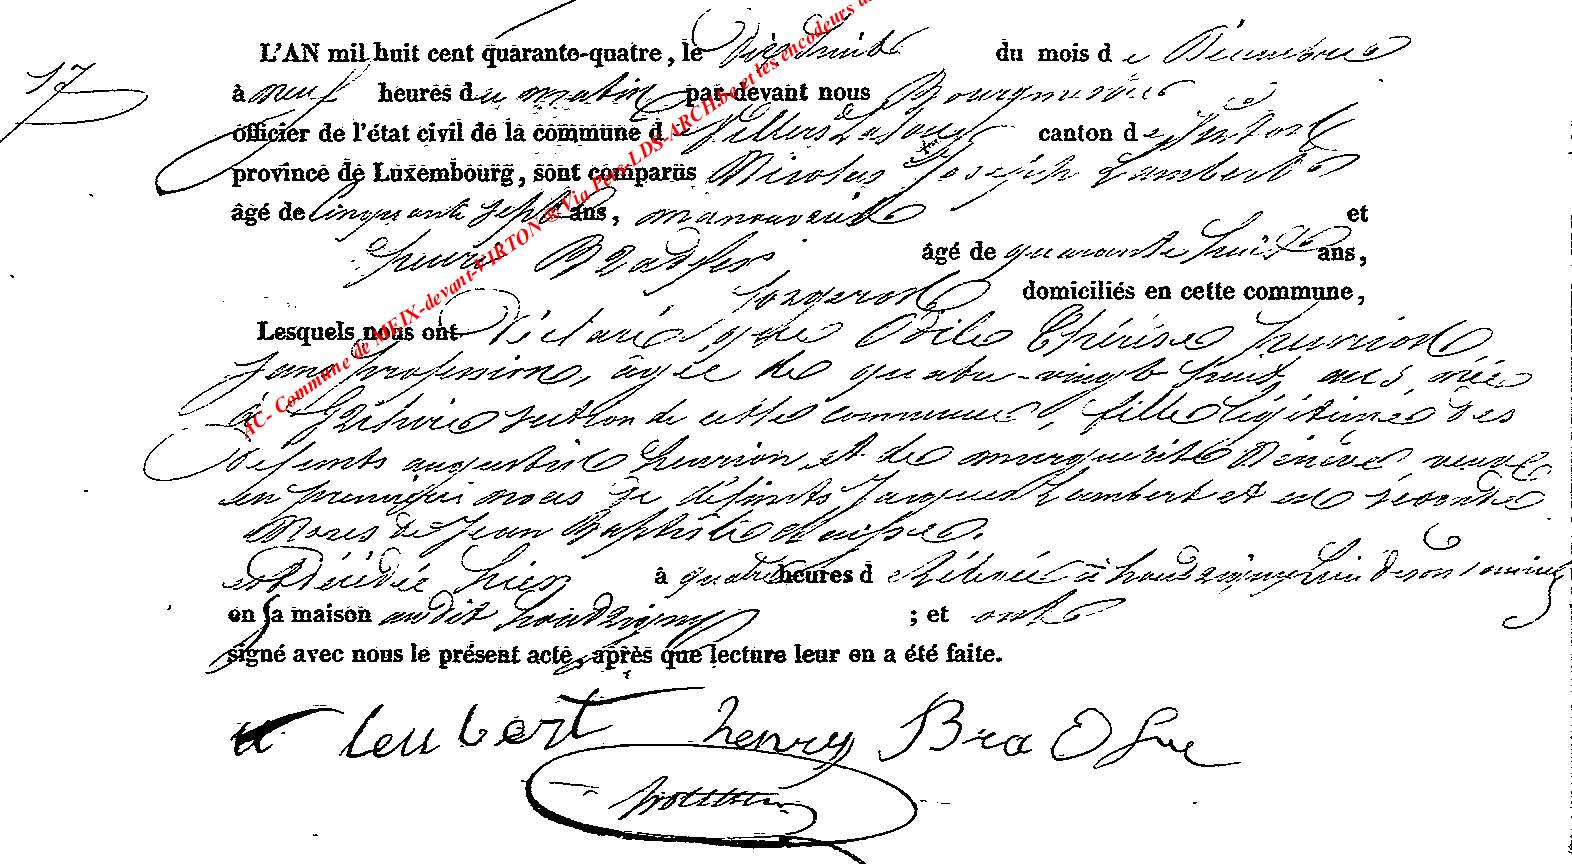 17
L'AN mil huit cent quarante-quatre, le Dix huit du mois de Décembre
à neuf heures du matin par devant nous Bourgmestre
officier de l'état civil de la commune de Villers Laloue canton de Virton
province de Luxembourg, sont comparus Nicolas Joseph Lambert
âgé de cinquante sept ans, manouvrier et
henri âgé de quarante huit ans,
forgeron domiciliés en cette commune,
Lesquels nous ont Déclaré que Odile Thérèse henrion
sans profession, âgée de quatre-vingt huit ans née
à section de cette commune, fille légitime des
défunts augustin henrion et de marguerite veuve
en premières noces de défunts Jacques Lambert et en seconde
Noces de Jean Baptiste
est Décédée hier à quatre heures de Rélevée à houdrigny lieu de son domicile
en sa maison audit houdrigny ; et ont
signé avec nous le présent acte, après que lecture leur en a été faite.
henry
AC- Commune de MEIX-devant-VIRTON ® Via Pero-LDS-ARCH.be et les encodeurs